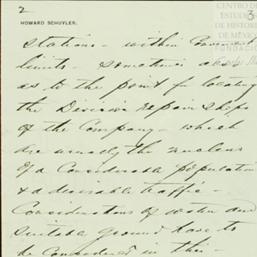 2
CENTRO DE
ESTUDIOS
DE HISTORIA
DE MÉXICO
HOWARD SCHUYLER.
3
stations - within Convenient
limits - Sometimes also
as to the point for locating
the Division repair shops
of the Company - which
are usually the nucleus
of a Considerable population
& a desirable traffic -
Considerations of water and
Suitable ground have to
be Considered in this -